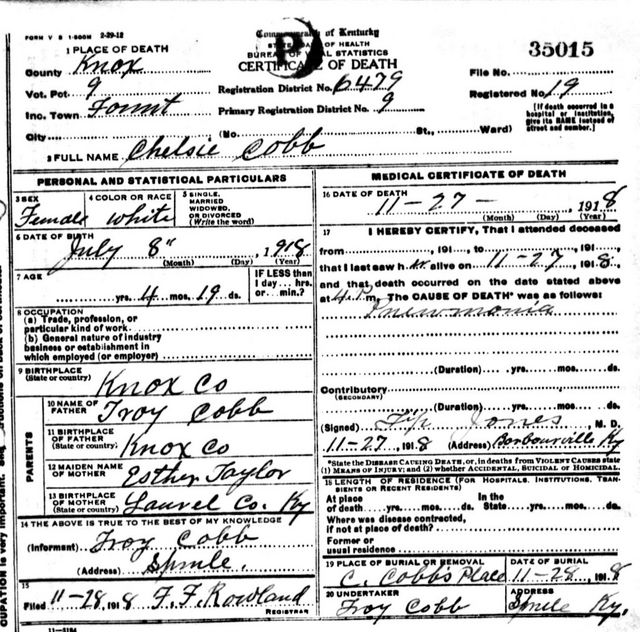 FORM V S 1-500M 2-29-12
Commonwealth of Kentucky
STATE BOARD OF HEALTH
BUREAU OF VITAL STATISTICS
CERTIFICATE OF DEATH
P
35015
1 PLACE OF DEATH
County Knox
Vot. Pct 9
Inc. Town Fount
City
Registration District No. 6479
Primary Registration District No. 9
File No.
Registered No. 19
(No. St., Ward)
[If death occurred in a hospital or institution, give its NAME instead of street and number.]
2 FULL NAME Chelsie Cobb
PERSONAL AND STATISTICAL PARTICULARS
3 SEX Female
4 COLOR OR RACE white
5 SINGLE, MARRIED WIDOWED, OR DIVORCED (Write the word)
6 DATE OF BIRTH
July 8" 1918
(Month) (Day) (Year)
7 AGE
yrs. 4 mos. 19 ds.
IF LESS than 1 day... hrs. or min.?
8 OCCUPATION
(a) Trade, profession, or particular kind of work
(b) General nature of industry business or establishment in which employed (or employer)
9 BIRTHPLACE (State or country) Knox Co
PARENTS
10 NAME OF FATHER Troy Cobb
11 BIRTHPLACE OF FATHER (State or country) Knox Co
12 MAIDEN NAME OF MOTHER Esther Taylor
13 BIRTHPLACE OF MOTHER (State or country) Laurel Co. Ky
14 THE ABOVE IS TRUE TO THE BEST OF MY KNOWLEDGE
(Informant) Troy Cobb
(Address)
15
Filed 11-28, 1918 F. F. Rowland
REGISTRAR
11-3184
MEDICAL CERTIFICATE OF DEATH
16 DATE OF DEATH
11-27-, 1918
(Month) (Day) (Year)
17 I HEREBY CERTIFY, That I attended deceased
from, 191, to, 191,
that I last saw h er alive on 11-27, 1918,
and that death occurred on the date stated above
at m. The CAUSE OF DEATH* was as follows:
Pneumonia
(Duration) yrs. mos. ds.
Contributory
(SECONDARY)
(Duration) yrs. mos. ds.
(Signed) Tip Jones, M. D.
11-27, 1918 (Address) Barbourville Ky
*State the DISEASE CAUSING DEATH, or, in deaths from VIOLENT CAUSES state
(1) MEANS OF INJURY; and (2) whether ACCIDENTAL, SUICIDAL or HOMICIDAL.
18 LENGTH OF RESIDENCE (FOR HOSPITALS, INSTITUTIONS, TRANSIENTS OR RECENT RESIDENTS)
At place of death yrs. mos. ds. In the State yrs. mos. ds.
Where was disease contracted, if not at place of death?
Former or usual residence
19 PLACE OF BURIAL OR REMOVAL
C. Cobbs Place
DATE OF BURIAL
11-28, 1918
20 UNDERTAKER
Troy Cobb
Ky.